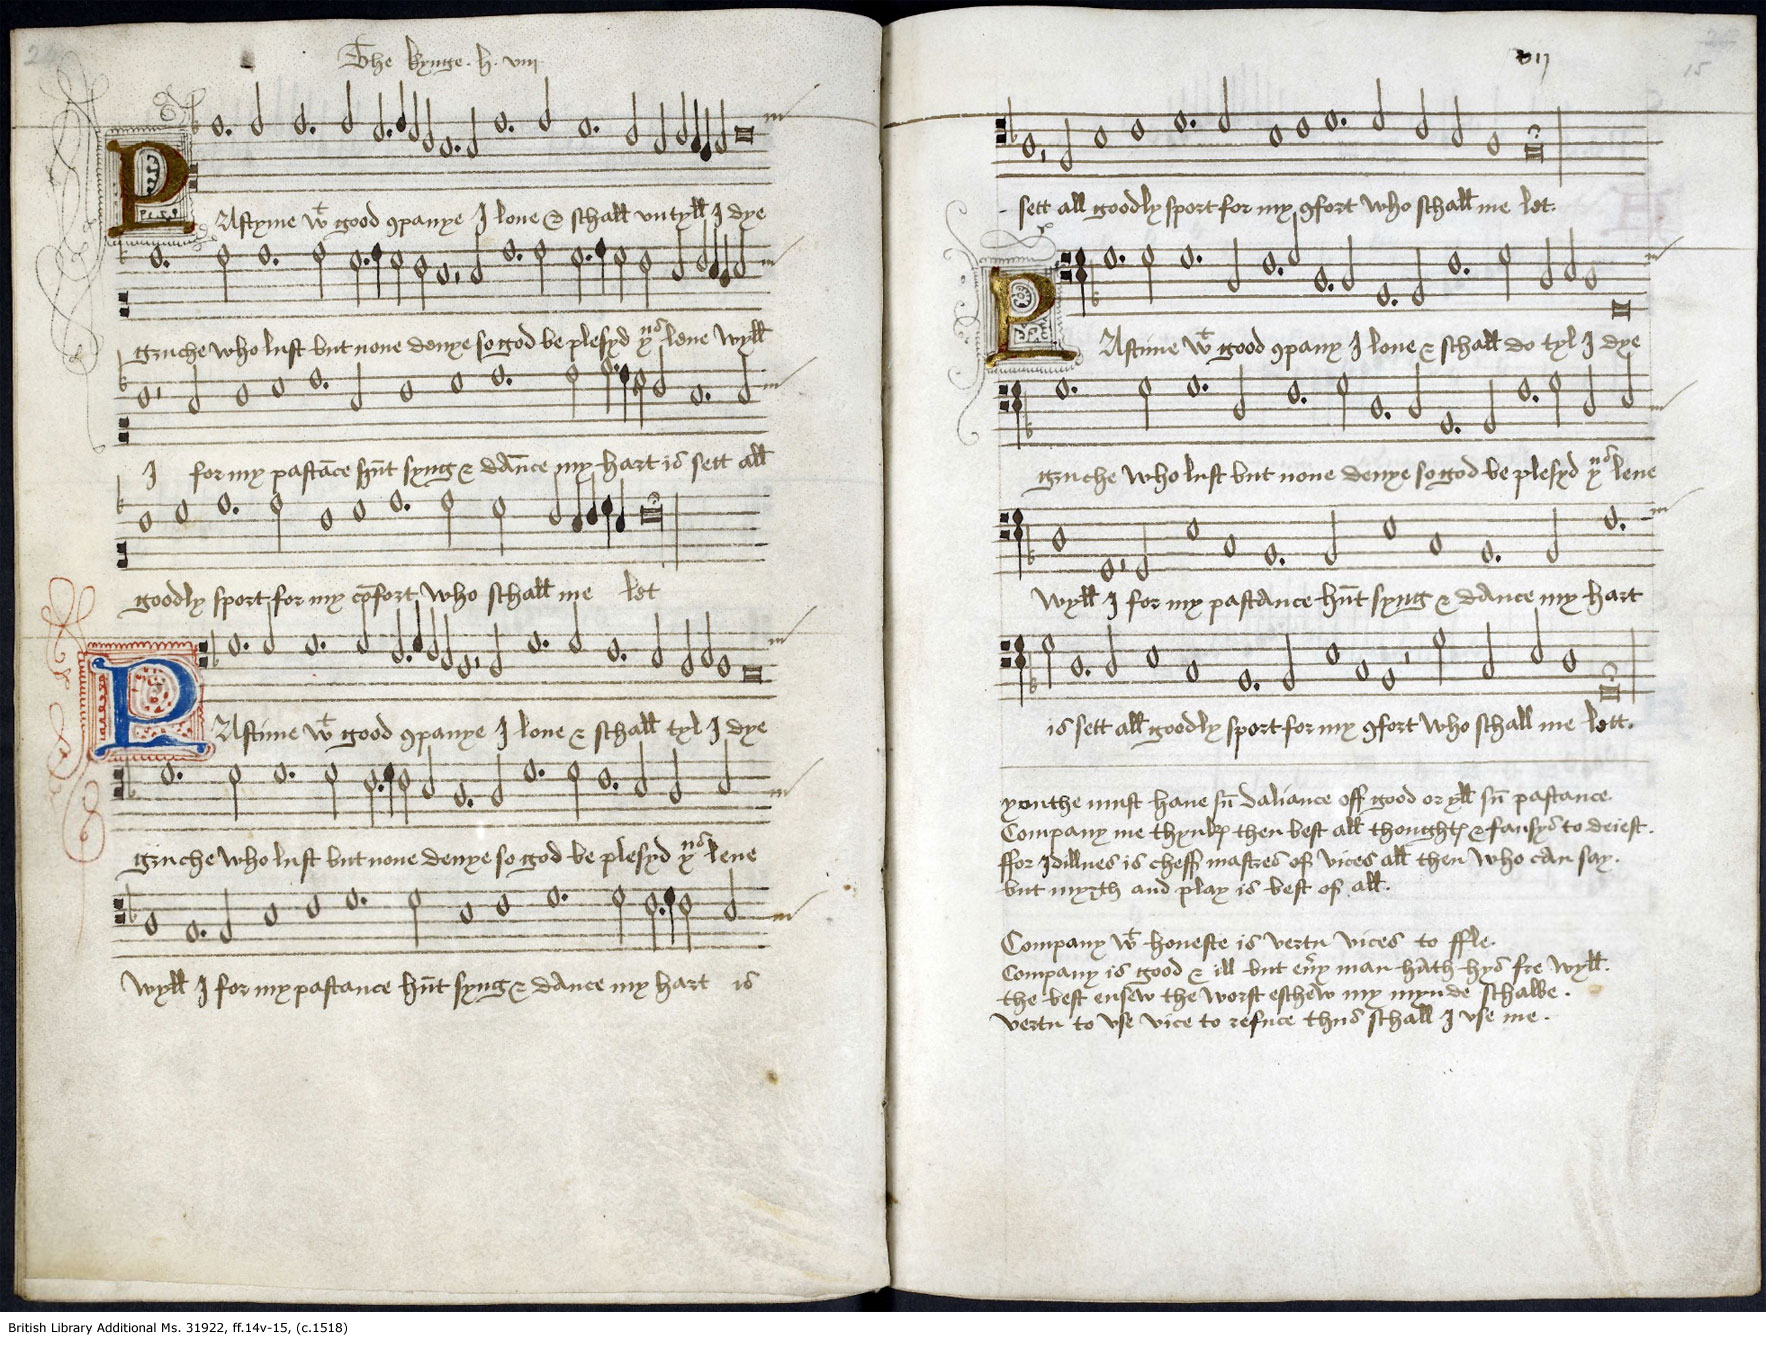 The kynge .h. viii
PAstyme wt good 9panye I loue & schall vntyll I dye
gruche who lust but none denye so god be plesyd þus leue wyll
I for my pastāce hūt syng & dāce my hart is sett all
goodly sport for my cōfort who schall me let
PAstime wt good 9panye I loue & schall tyl I dye
gruche who lust but none denye so god be plesyd yus leue
wyll I for my pastance hūt syng & dance my hart is
15
sett all goodly sport for my 9fort who schall me let.
PAstime wt good 9pany I loue & schall do tyl I dye
gruche who lust but none denye so god be plesyd yus leue
wyll I for my pastance hūt syng & dance my hart
is sett all goodly sport for my 9fort who schall me lett.
youthe must haue sū daliance off good or yll sū pastance.
Company me thynkes then best all thoughtes & fansys to deiest.
ffor Idillnes is cheff mastres of vices all then who can say.
but myrth and play is best of all.
Company wt honeste is vertu vices to ffle.
Company is good & ill but eūy man hath hys fre wyll.
the best ensew the worst eschew my mynde schalbe.
vertu to vse vice to refuce thus schall I vse me.
British Library Additional Ms. 31922, ff.14v-15, (c.1518)